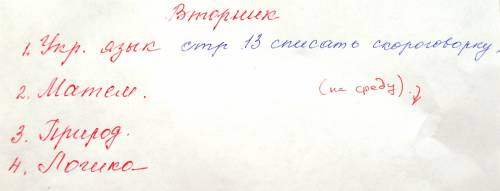 Вторник
1. Укр. язык стр 13 списать скороговорку.
2. Матем. (на среду).
3. Природ.
4. Логика